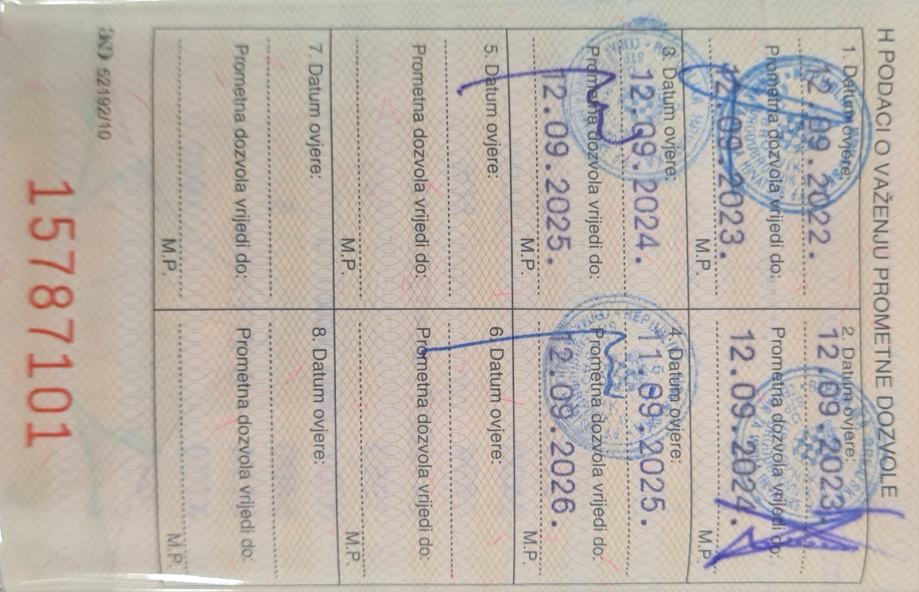 H PODACI O VAŽENJU PROMETNE DOZVOLE
1. Datum ovjere:
12.09.2022.
Prometna dozvola vrijedi do:
12.09.2023.
M.P.
2. Datum ovjere:
12.09.2023.
Prometna dozvola vrijedi do:
12.09.2024.
M.P.
3. Datum ovjere:
12.09.2024.
Prometna dozvola vrijedi do:
12.09.2025.
M.P.
4. Datum ovjere:
11.09.2025.
Prometna dozvola vrijedi do:
12.09.2026.
M.P.
5. Datum ovjere:
Prometna dozvola vrijedi do:
M.P.
6. Datum ovjere:
Prometna dozvola vrijedi do:
M.P.
7. Datum ovjere:
Prometna dozvola vrijedi do:
M.P.
8. Datum ovjere:
Prometna dozvola vrijedi do:
M.P.
52192/10
15787101